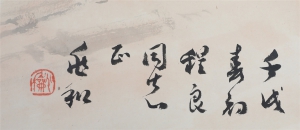 壬戌
春初
程良
同志
正